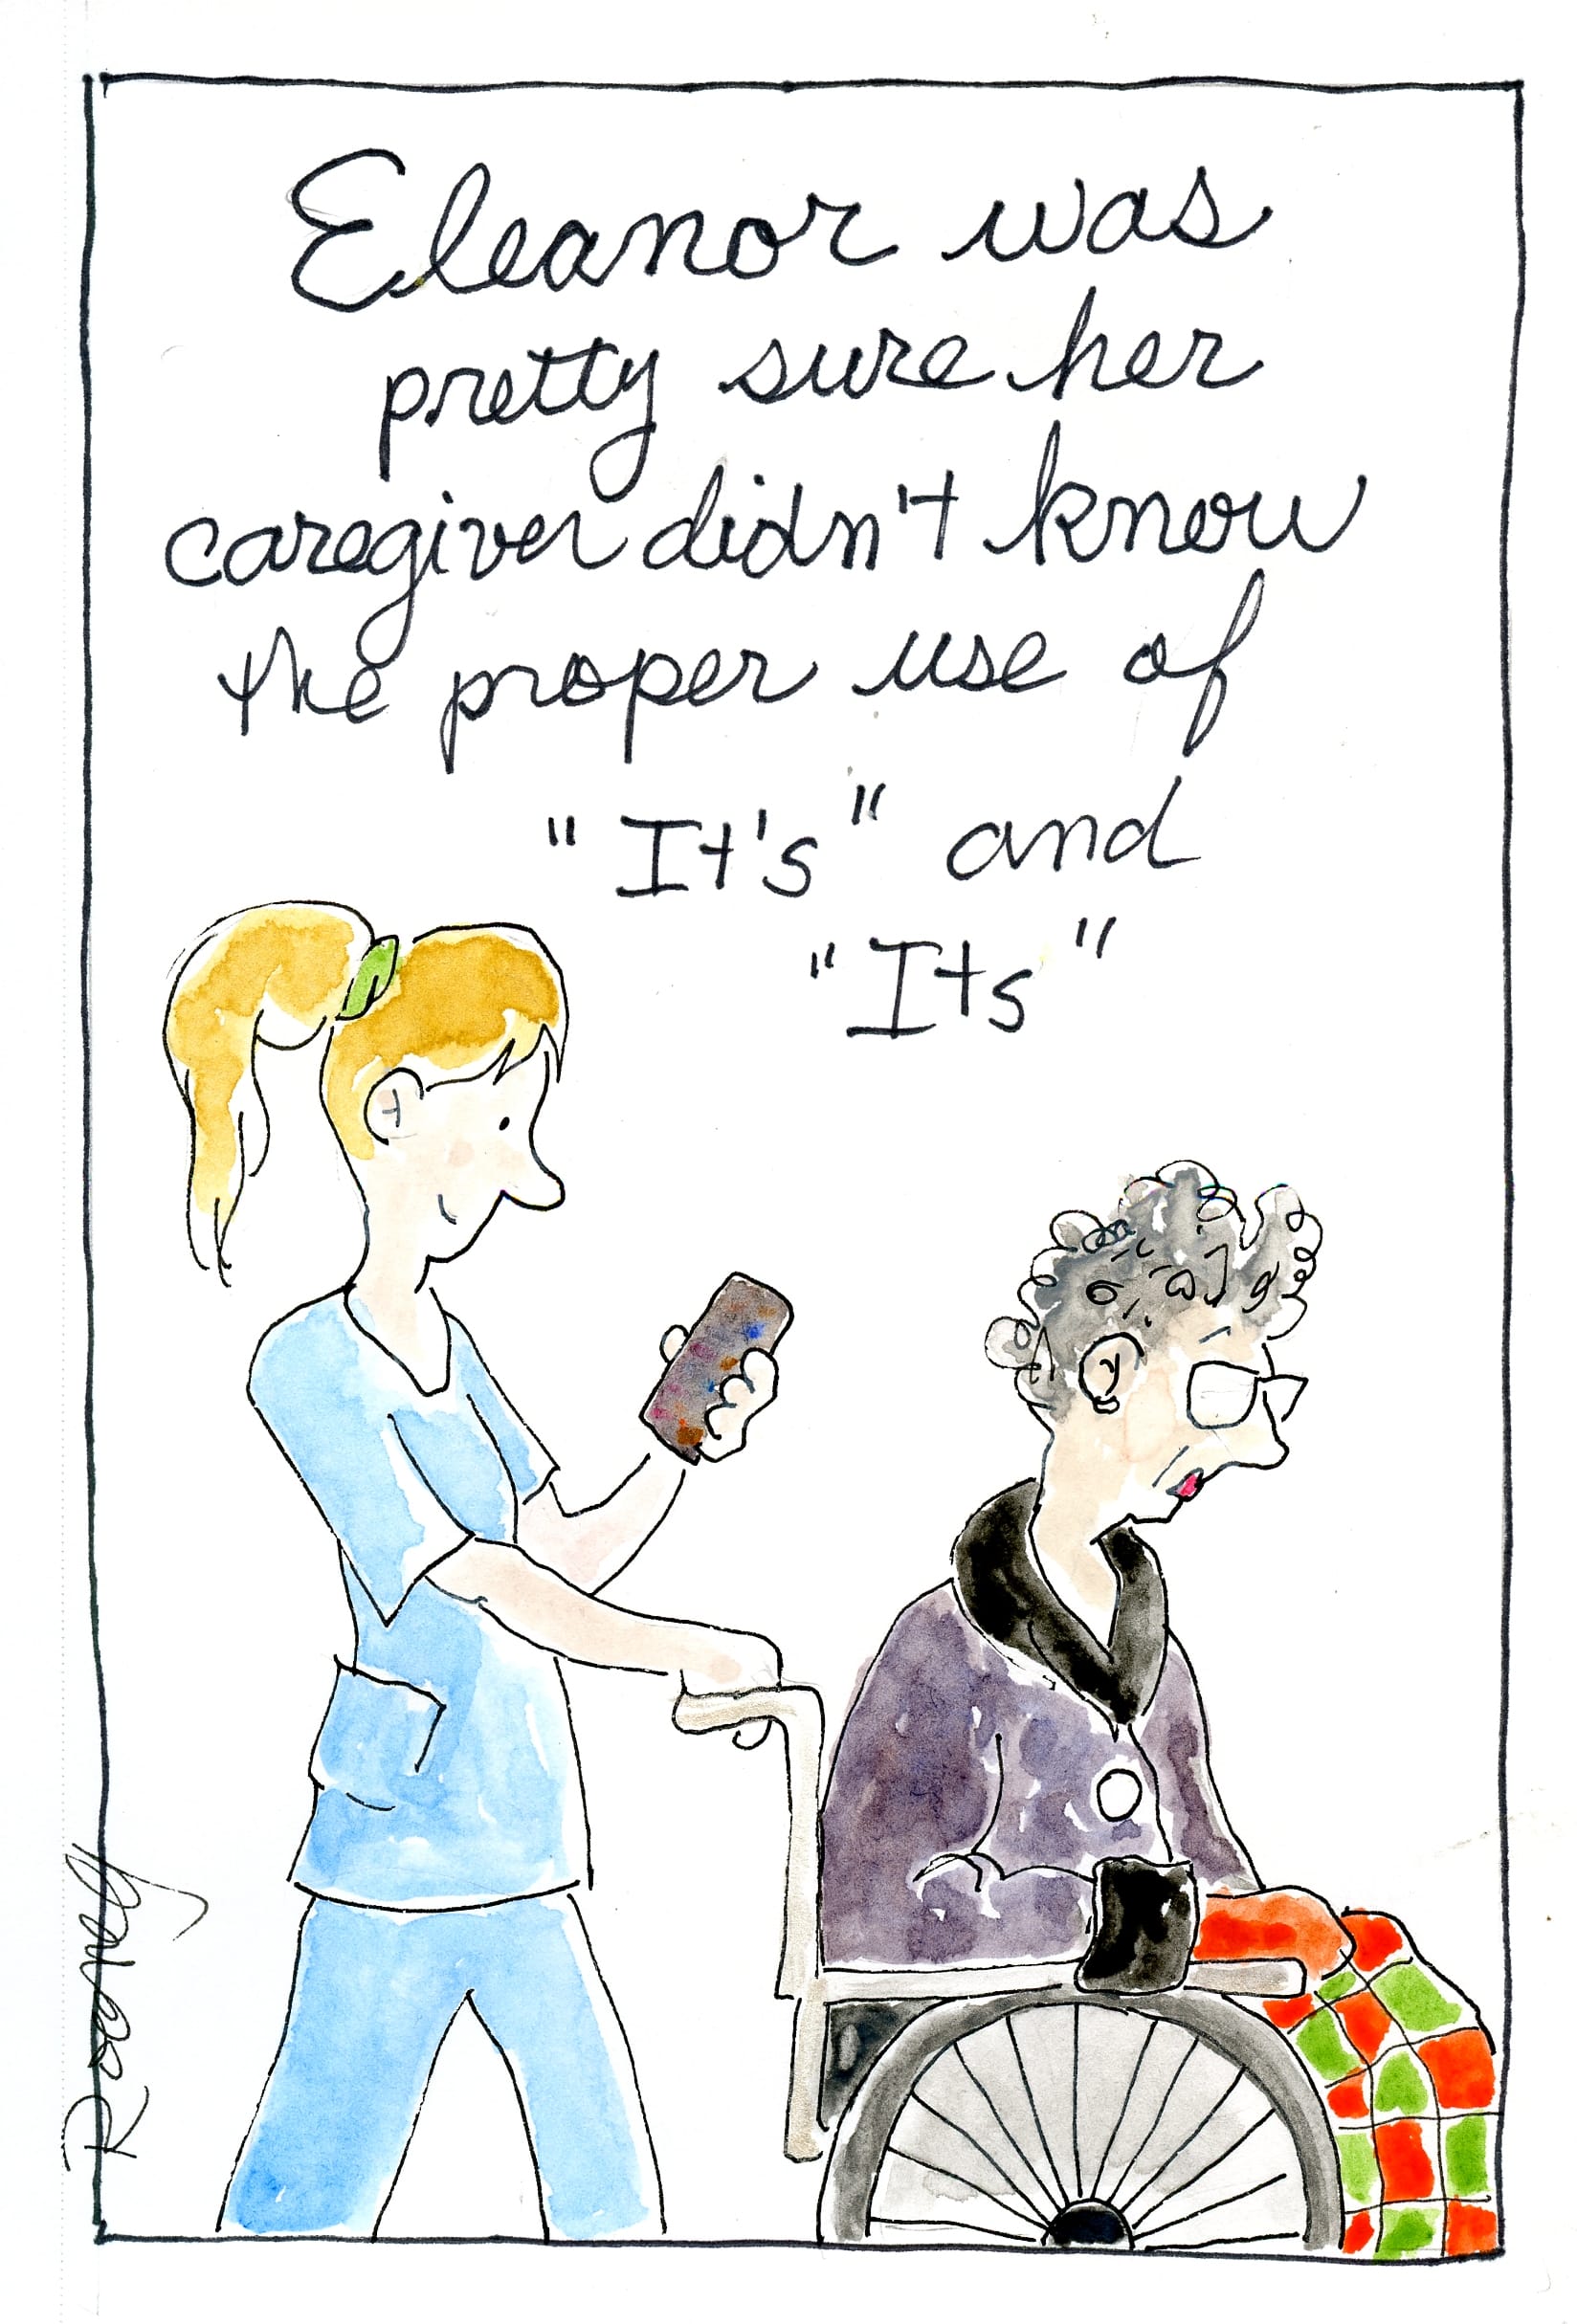 Eleanor was
pretty sure her
caregiver didn't know
the proper use of
"It's" and
"Its"
Roonely